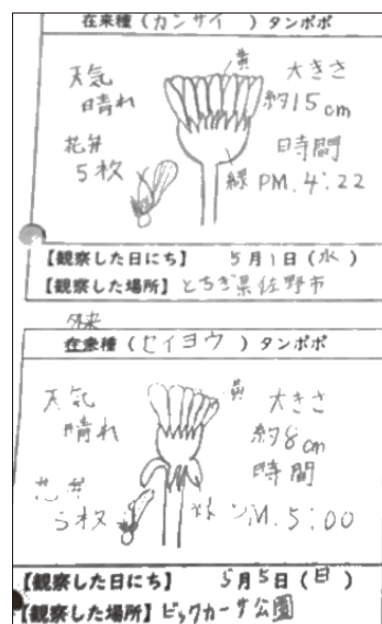 在来種(カンサイ )タンポポ
黄
天気
晴れ
大きさ
約15cm
花弁
5枚
時間
緑 PM. 4:22
【観察した日にち】 5月1日(水)
【観察した場所】とちぎ県佐野市
外来
在来種(セイヨウ )タンポポ
黄
天気
晴れ
大きさ
約8cm
花弁
5枚
時間
M. 5:00
【観察した日にち】 5月5日(日)
【観察した場所】ビックカーサ公園